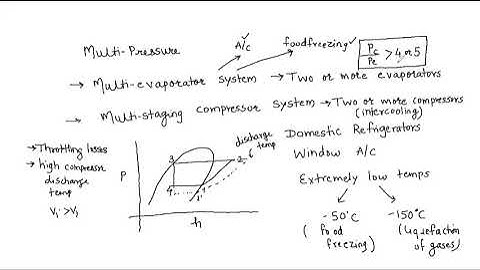 Multi-Pressure
A/C
foodfreezing ✓
Pc/Pe > 4 or 5
→ Multi-evaporator system → Two or more evaporators
→ Multi-staging compressor system → Two or more compressors
(intercooling)
→ Throttling losses
→ high compressor
discharge
temp
V1' > V1
P
h
3
2
4
1
1'
discharge
temp
Domestic Refrigerators
Window A/C
Extremely low temps
-50°C
(food
freezing)
-150°C
(liquefaction
of gases)